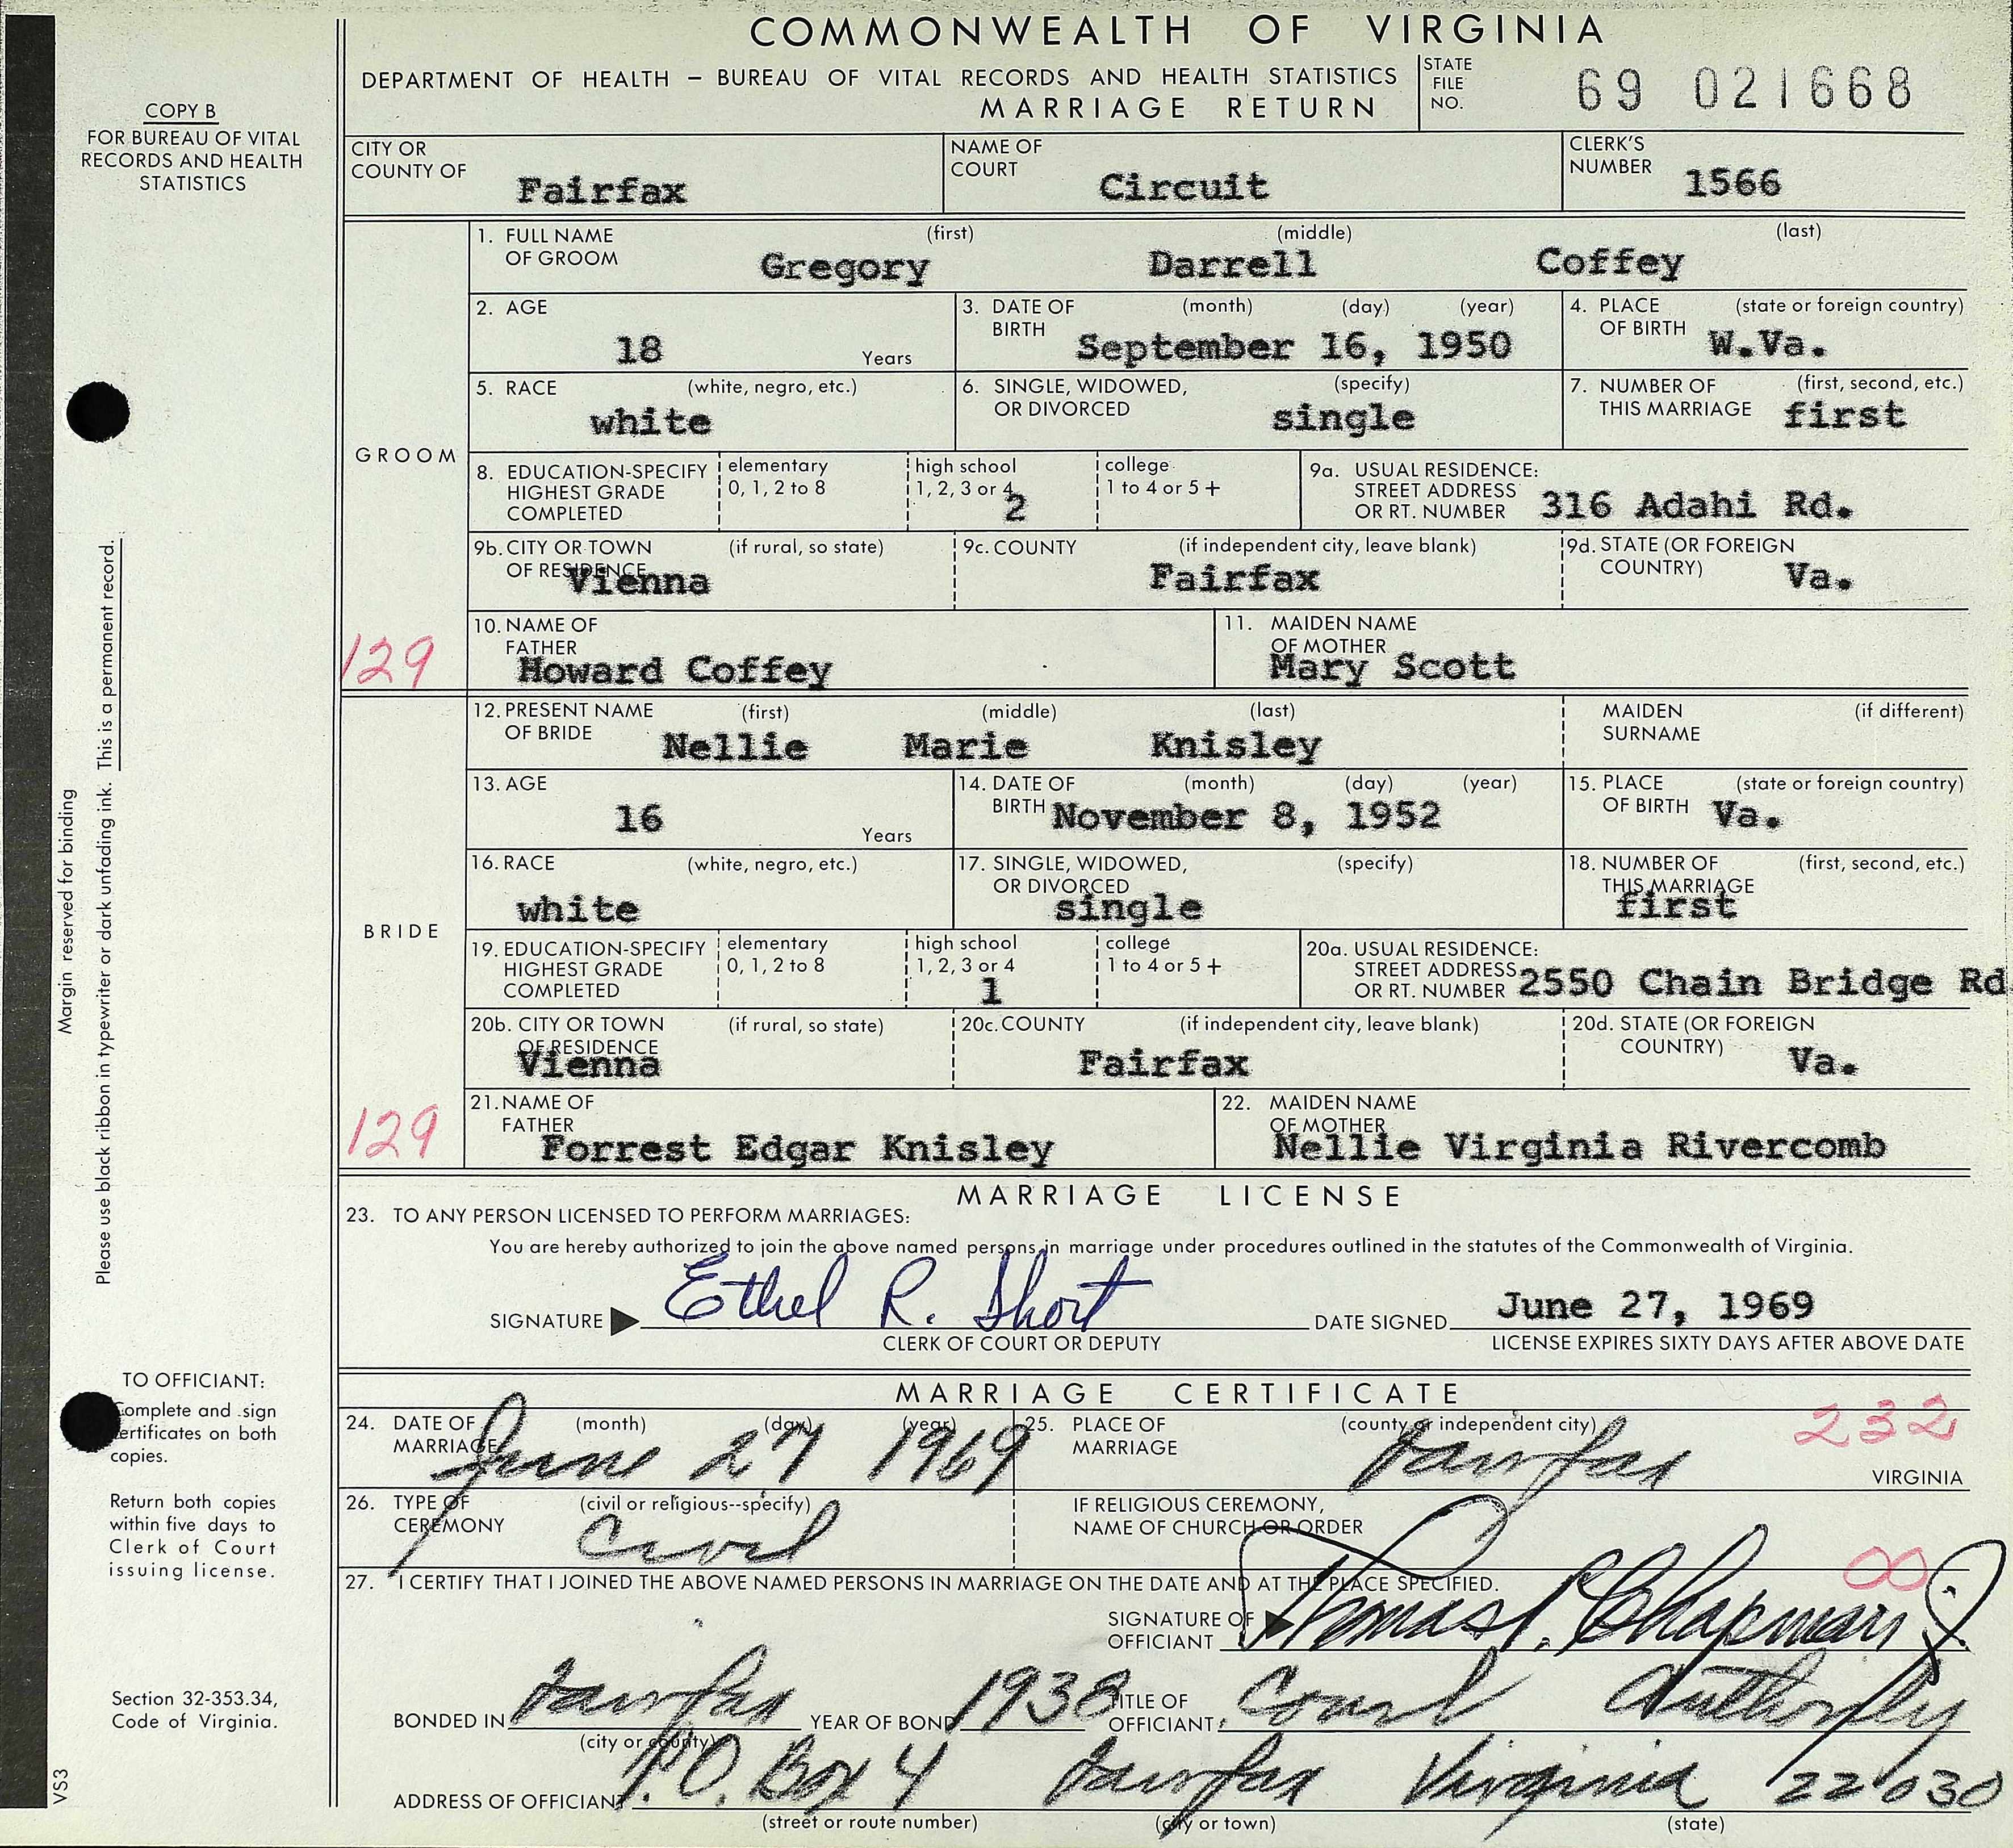 COMMONWEALTH OF VIRGINIA
DEPARTMENT OF HEALTH – BUREAU OF VITAL RECORDS AND HEALTH STATISTICS
MARRIAGE RETURN
STATE FILE NO. 69 021668
COPY B
FOR BUREAU OF VITAL
RECORDS AND HEALTH
STATISTICS
CITY OR COUNTY OF Fairfax
NAME OF COURT Circuit
CLERK'S NUMBER 1566
GROOM
1. FULL NAME OF GROOM (first) Gregory (middle) Darrell (last) Coffey
2. AGE 18 Years
3. DATE OF BIRTH (month) (day) (year) September 16, 1950
4. PLACE OF BIRTH (state or foreign country) W.Va.
5. RACE (white, negro, etc.) white
6. SINGLE, WIDOWED, OR DIVORCED (specify) single
7. NUMBER OF THIS MARRIAGE (first, second, etc.) first
8. EDUCATION-SPECIFY HIGHEST GRADE COMPLETED elementary 0, 1, 2 to 8 high school 1, 2, 3 or 4 2 college 1 to 4 or 5 +
9a. USUAL RESIDENCE: STREET ADDRESS OR RT. NUMBER 316 Adahi Rd.
9b. CITY OR TOWN OF RESIDENCE (if rural, so state) Vienna
9c. COUNTY (if independent city, leave blank) Fairfax
9d. STATE (OR FOREIGN COUNTRY) Va.
129
10. NAME OF FATHER Howard Coffey
11. MAIDEN NAME OF MOTHER Mary Scott
BRIDE
12. PRESENT NAME OF BRIDE (first) Nellie (middle) Marie (last) Knisley
MAIDEN SURNAME (if different)
13. AGE 16 Years
14. DATE OF BIRTH (month) (day) (year) November 8, 1952
15. PLACE OF BIRTH (state or foreign country) Va.
16. RACE (white, negro, etc.) white
17. SINGLE, WIDOWED, OR DIVORCED (specify) single
18. NUMBER OF THIS MARRIAGE (first, second, etc.) first
19. EDUCATION-SPECIFY HIGHEST GRADE COMPLETED elementary 0, 1, 2 to 8 high school 1, 2, 3 or 4 1 college 1 to 4 or 5 +
20a. USUAL RESIDENCE: STREET ADDRESS OR RT. NUMBER 2550 Chain Bridge Rd
20b. CITY OR TOWN OF RESIDENCE (if rural, so state) Vienna
20c. COUNTY (if independent city, leave blank) Fairfax
20d. STATE (OR FOREIGN COUNTRY) Va.
129
21. NAME OF FATHER Forrest Edgar Knisley
22. MAIDEN NAME OF MOTHER Nellie Virginia Rivercomb
MARRIAGE LICENSE
23. TO ANY PERSON LICENSED TO PERFORM MARRIAGES:
You are hereby authorized to join the above named persons in marriage under procedures outlined in the statutes of the Commonwealth of Virginia.
SIGNATURE Ethel R. Short DATE SIGNED June 27, 1969
CLERK OF COURT OR DEPUTY LICENSE EXPIRES SIXTY DAYS AFTER ABOVE DATE
MARRIAGE CERTIFICATE
24. DATE OF MARRIAGE (month) (day) (year) June 27 1969
25. PLACE OF MARRIAGE (county or independent city) Fairfax 232 VIRGINIA
26. TYPE OF CEREMONY (civil or religious--specify) Civil
IF RELIGIOUS CEREMONY, NAME OF CHURCH OR ORDER
00
27. I CERTIFY THAT I JOINED THE ABOVE NAMED PERSONS IN MARRIAGE ON THE DATE AND AT THE PLACE SPECIFIED.
SIGNATURE OF OFFICIANT Thomas P. Chapman Jr.
BONDED IN Fairfax (city or county) YEAR OF BOND 1938 TITLE OF OFFICIANT Court Authority
ADDRESS OF OFFICIANT P.O. Box 4 Fairfax Virginia 22030
(street or route number) (city or town) (state)
Margin reserved for binding
Please use black ribbon in typewriter or dark unfading ink. This is a permanent record.
TO OFFICIANT:
Complete and sign
certificates on both
copies.
Return both copies
within five days to
Clerk of Court
issuing license.
Section 32-353.34,
Code of Virginia.
VS3